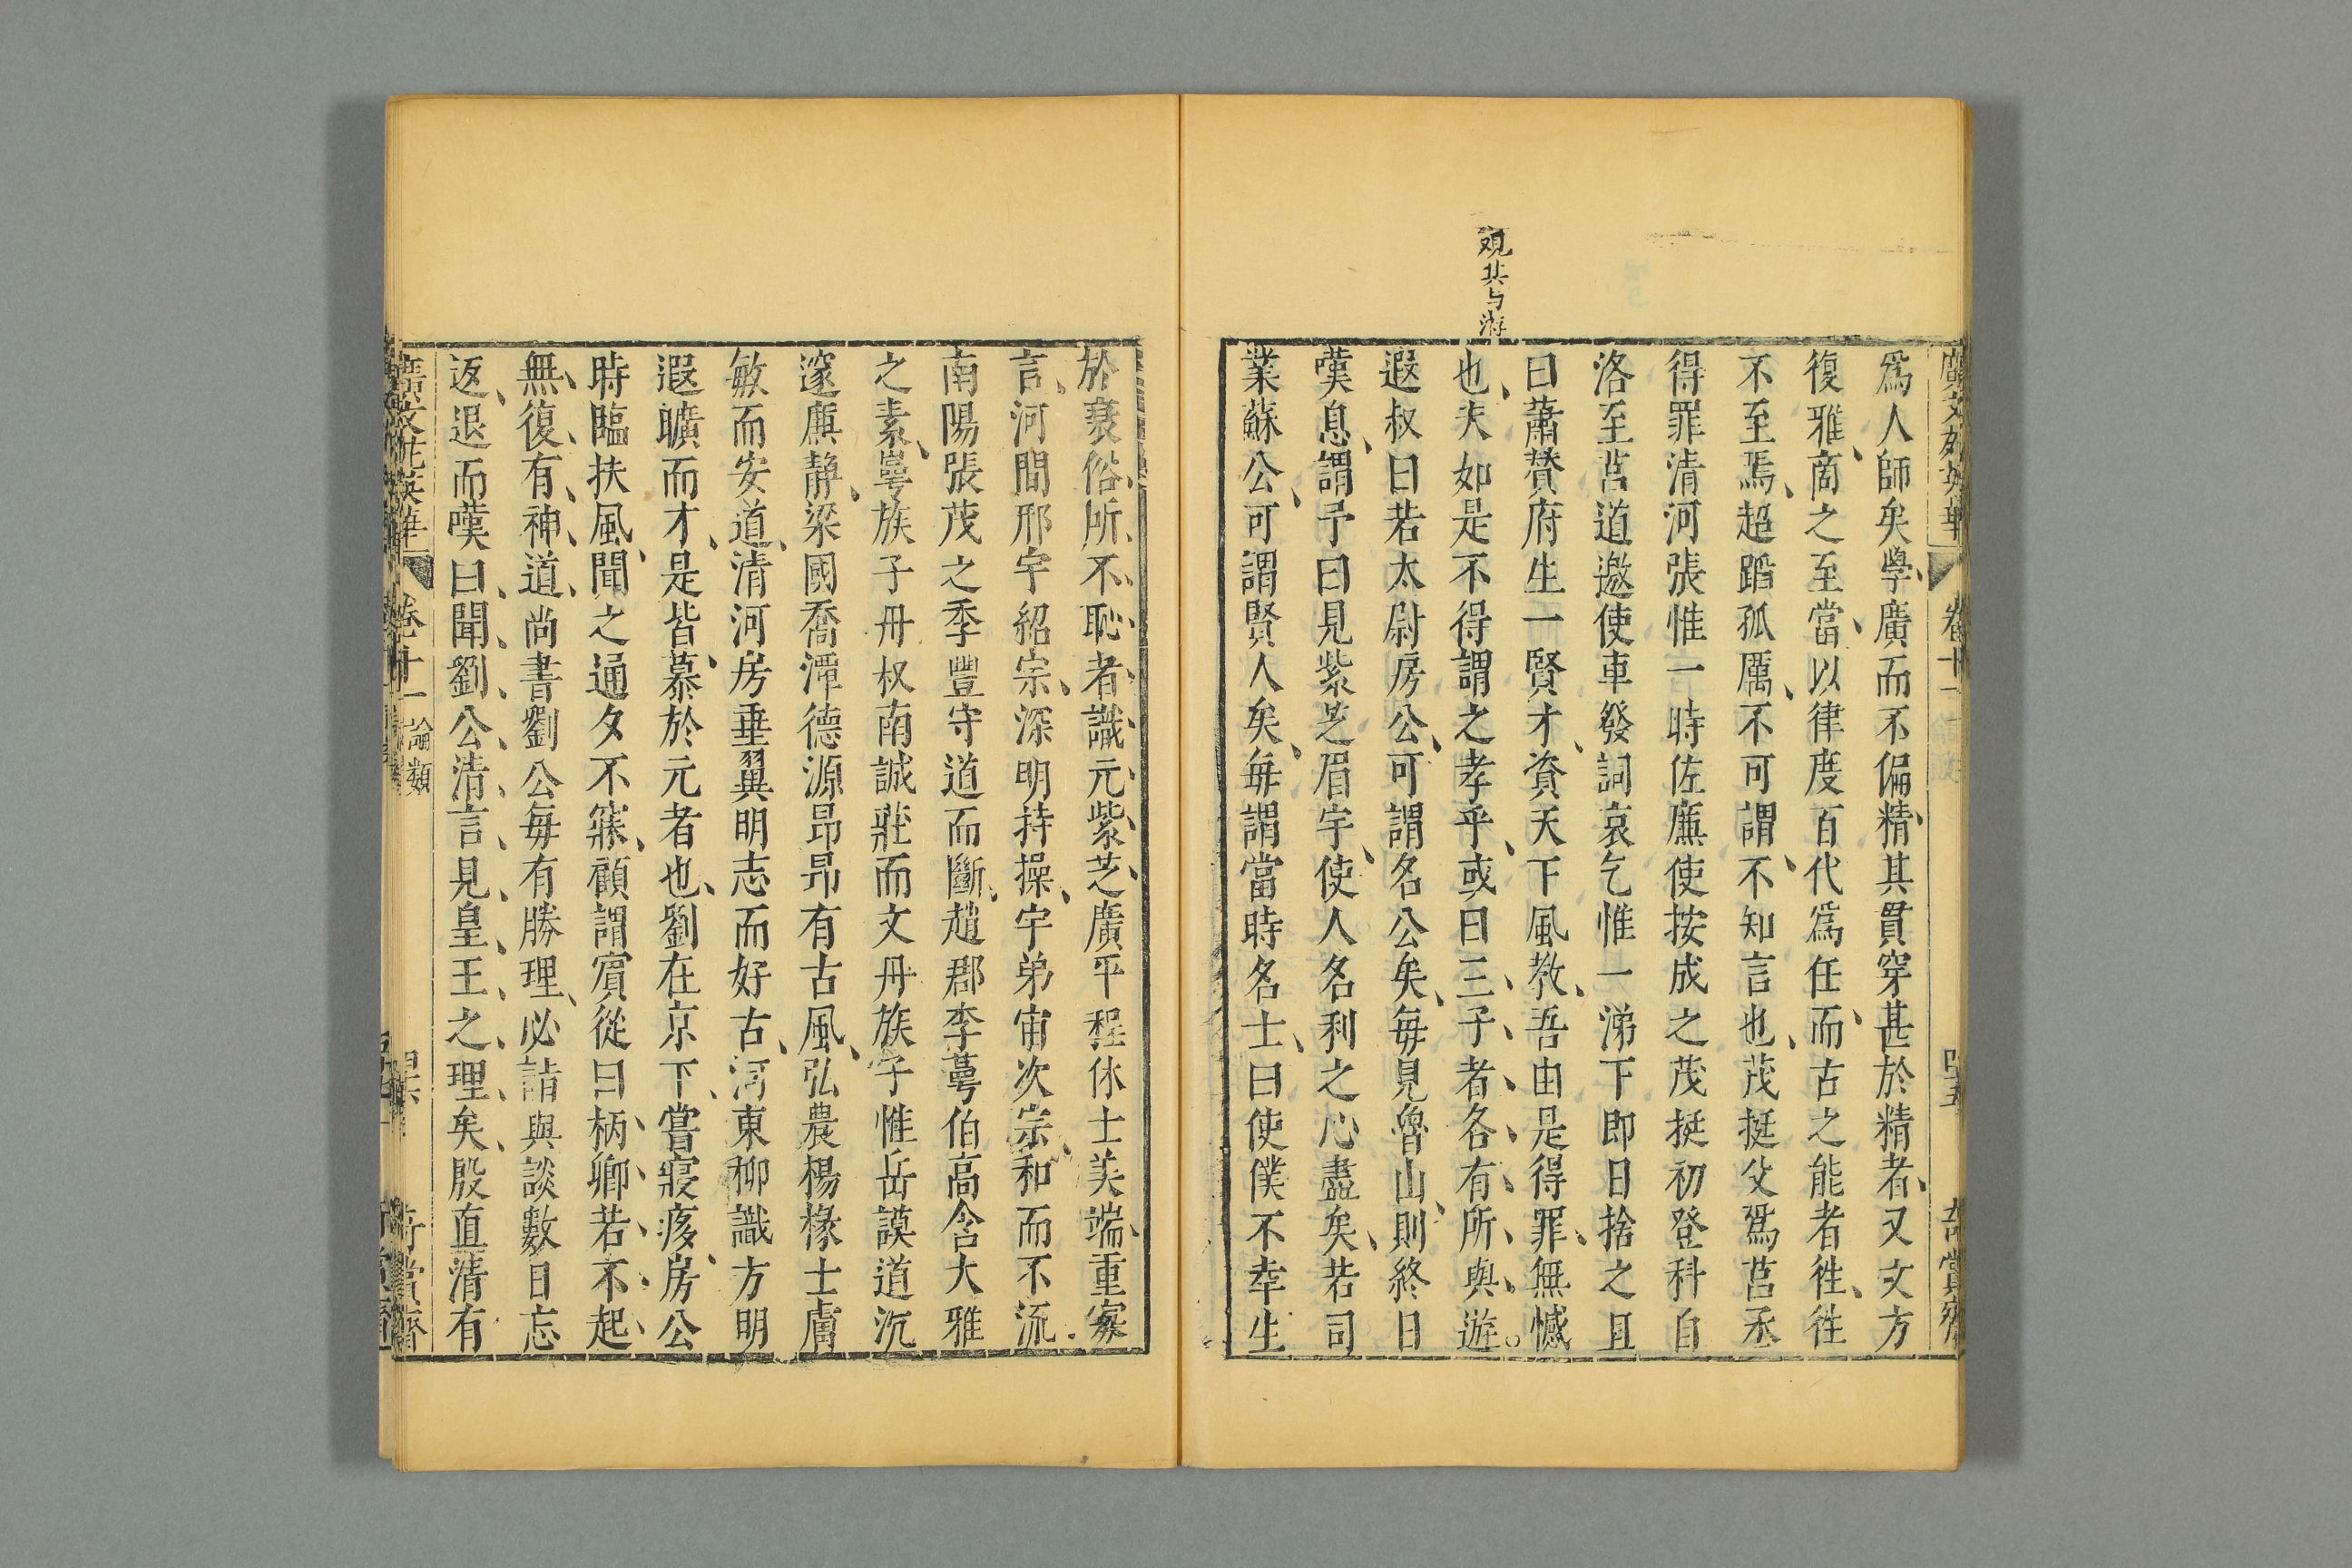 爲人師矣學廣而不偏精其貫穿甚於精者又文方
復雅啇之至當以律度百代爲任而古之能者徃徃
不至焉超蹈孤厲不可謂不知言也茂挺父爲莒丞
得罪清河張惟一時佐廉使按成之茂挺初登科自
洛至莒道邀使車發詞哀乞惟一涕下即日捨之且
曰蕭贊府生一賢才資天下風教吾由是得罪無憾
也夫如是不得謂之孝乎或曰三子者各有所與遊
观其与游
遐叔曰若太尉房公可謂名公矣每見魯山則終日
嘆息謂予曰見紫芝眉宇使人名利之心盡矣若司
業蘇公可謂賢人矣每謂當時名士曰使僕不幸生
於衰俗所不恥者識元紫芝廣平程休士美端重寡
言河間邢宇紹宗深明持操宇弟宙次宗和而不流
南陽張茂之季豐守道而斷趙郡李蕚伯高含大雅
之素蕚族子丹叔南誠莊而文丹族子惟岳謨道沉
邃廉靜梁國喬潭德源昂昂有古風弘農楊椽士膚
敏而安道清河房垂翼明志而好古河東柳識方明
遐曠而才是皆慕於元者也劉在京下嘗寢疾房公
時臨扶風聞之通夕不寐顧謂賓從曰柄卿若不起
無復有神道尚書劉公每有勝理必詣與談數日忘
返退而嘆曰聞劉公清言見皇王之理矣殷直清有
廣文苑英華 卷十一 論類 奇賞齋